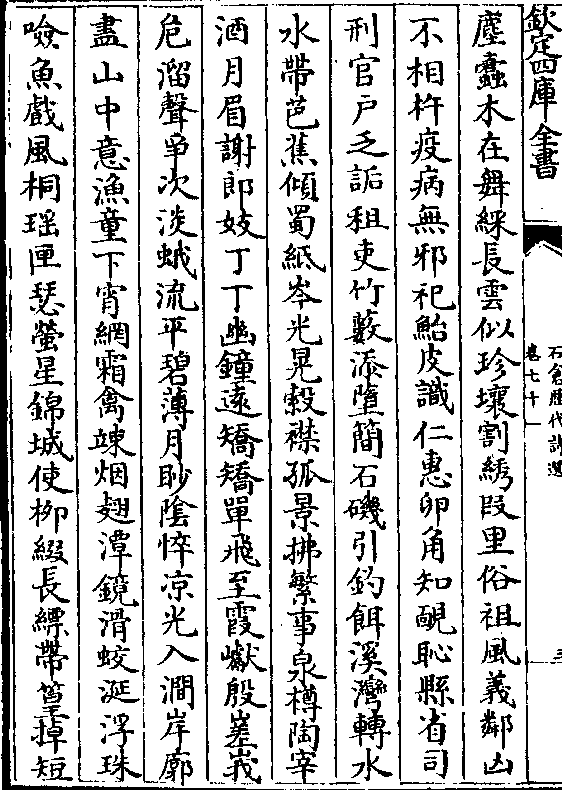 欽定四庫全書
石倉歷代詩選
卷七十一
三
塵蠹木在舞綵長雲似珍壤割綉段里俗祖風義鄰凶
不相杵疫病無邪祀鮐皮識仁惠丱角知靦恥縣省司
刑官戶乏詬租吏竹藪添墮簡石磯引釣餌溪灣轉水
水帶芭蕉傾蜀紙岑光晃縠襟孤景拂繁事泉樽陶宰
酒月眉謝郎妓丁丁幽鐘遠矯矯單飛至霞巘殷嵯峩
危溜聲爭次淡蛾流平碧薄月眇陰悴凉光入澗岸廓
盡山中意漁童下宵網霜禽竦烟翅潭鏡滑蛟涎浮珠
噞魚戲風桐瑶匣瑟螢星錦城使栁綴長縹帶篁掉短